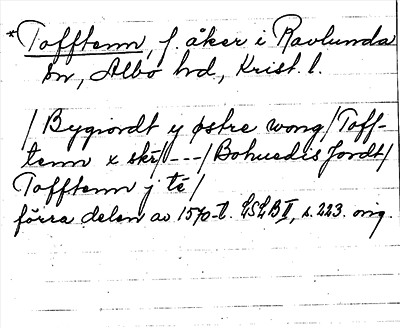 *Tofftenn, f. åker i Ravlunda
sn, Albo hd, Krist. l.
/Bygiordt y østre wong/Toff-
tenn x skr/---/Bohuedis Jordt/
Tofftenn j té/
förra delen av 1570-t. LSLB II, s. 223. orig.